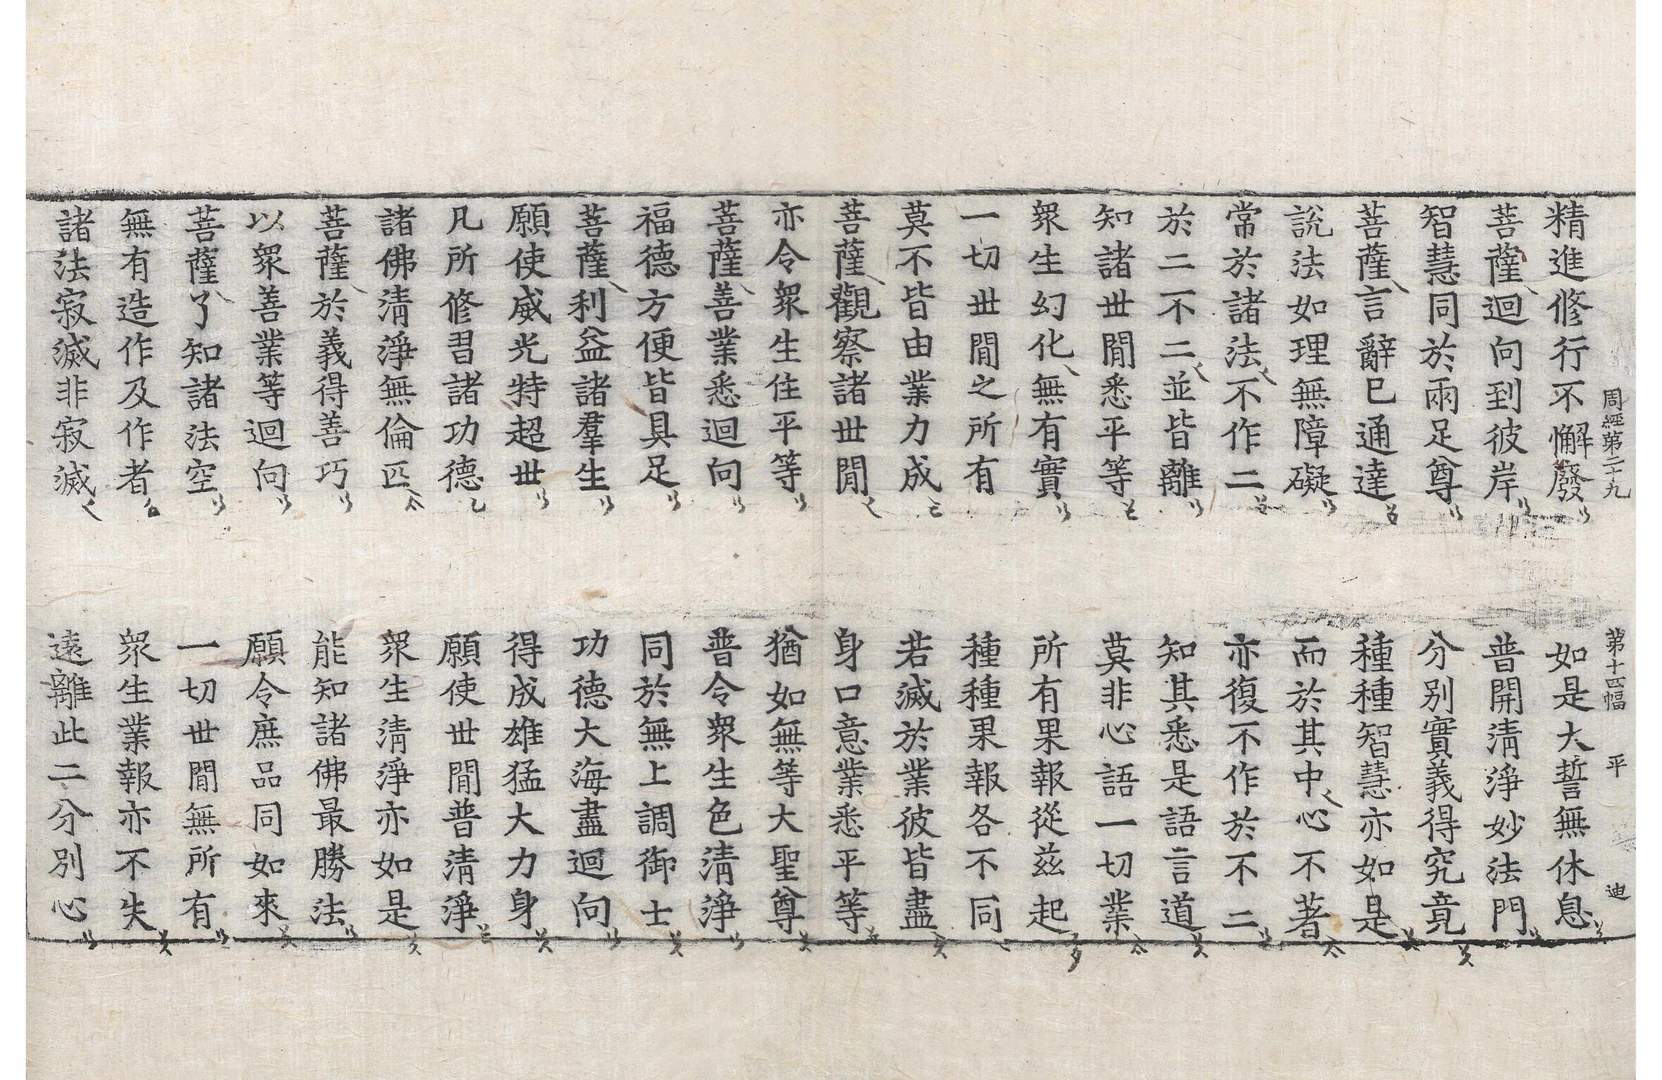 周經第二十九　第十四幅　平　迪
精進修行不懈廢　如是大誓無休息
菩薩迴向到彼岸　普開清淨妙法門
智慧同於兩足尊　分別實義得究竟
菩薩言辭已通達　種種智慧亦如是
說法如理無障礙　而於其中心不著
常於諸法不作二　亦復不作於不二
於二不二並皆離　知其悉是語言道
知諸世間悉平等　莫非心語一切業
衆生幻化無有實　所有果報從茲起
一切世間之所有　種種果報各不同
莫不皆由業力成　若滅於業彼皆盡
菩薩觀察諸世間　身口意業悉平等
亦令衆生住平等　猶如無等大聖尊
菩薩善業悉迴向　普令衆生色清淨
福德方便皆具足　同於無上調御士
菩薩利益諸羣生　功德大海盡迴向
願使威光特超世　得成雄猛大力身
凡所修習諸功德　願使世間普清淨
諸佛清淨無倫匹　衆生清淨亦如是
菩薩於義得善巧　能知諸佛最勝法
以衆善業等迴向　願令庶品同如來
菩薩了知諸法空　一切世間無所有
無有造作及作者　衆生業報亦不失
諸法寂滅非寂滅　遠離此二分別心